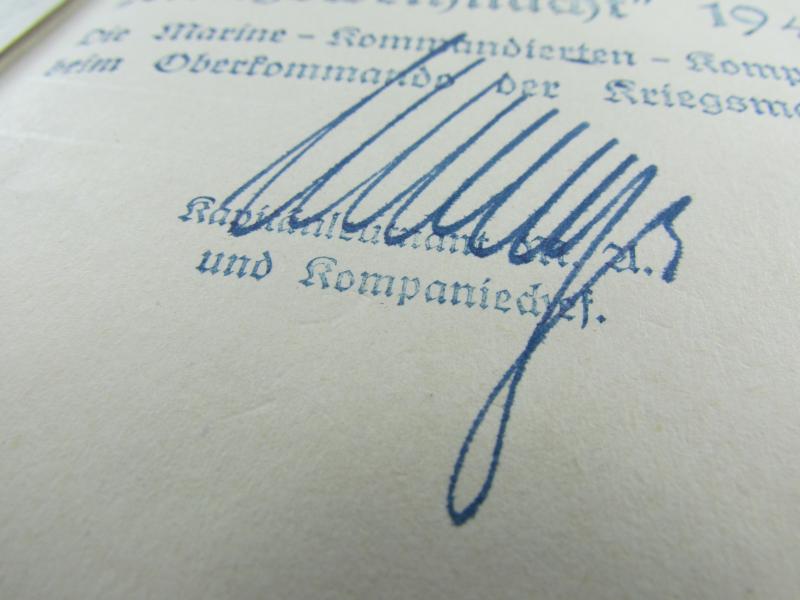 Kriegsweihnacht" 194
Die Marine-Kommandierten-Komp
beim Oberkommando der Kriegsma
Kapitänleutnant M. A.
und Kompaniechef.